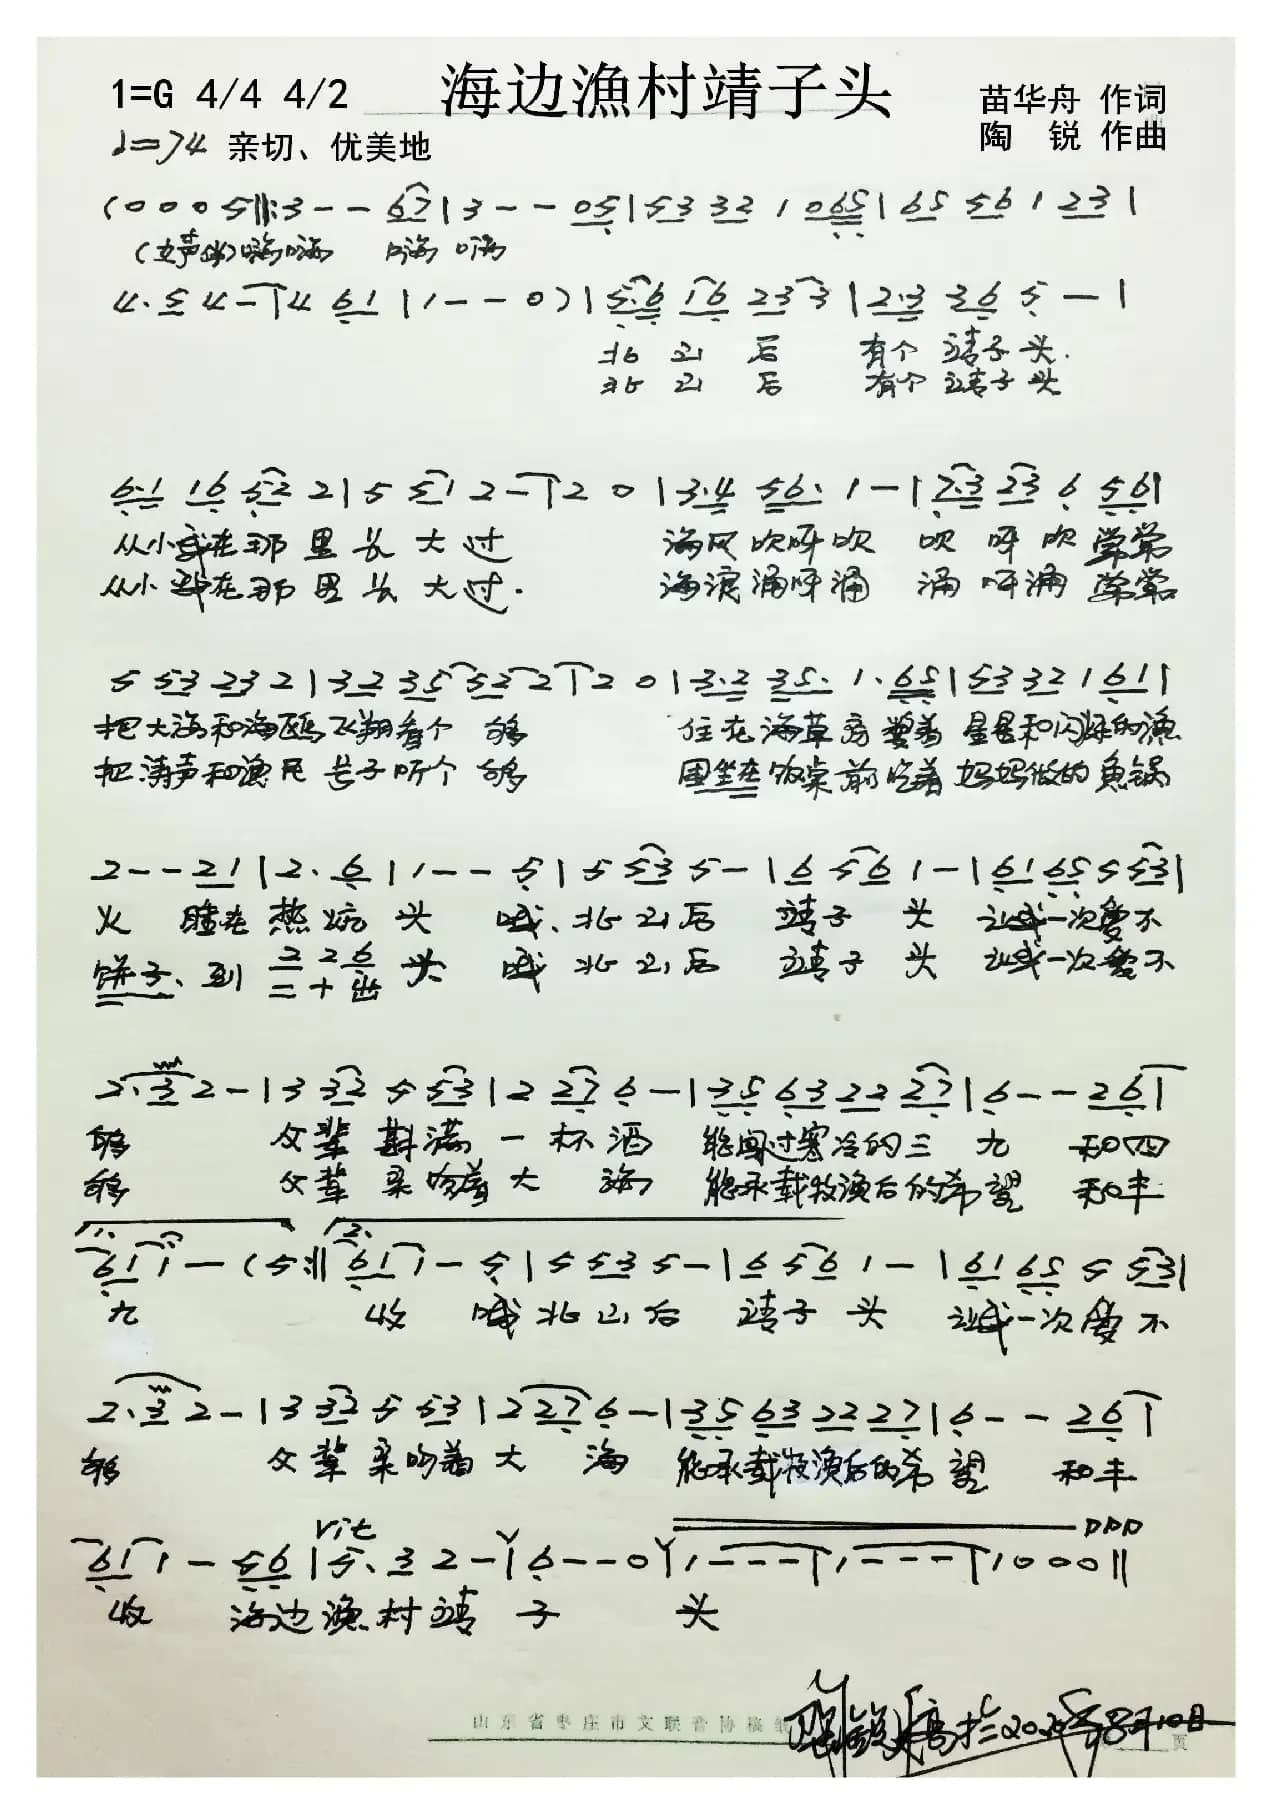 1=G 4/4 4/2 海边漁村靖子头 苗华舟 作词
陶 锐 作曲
♩=74 亲切、优美地
(0 0 0 5‖:3 - - 67|3 - - 05|53 32 1 065|65 56 1 23|
(女声伴)嗨嗨 嗨 嗨
4. 5 4 - |4 61 |1 - - 0)|5.6 16 23 3|2.3 36 5 - |
北 山 后 有个 靖子头.
北 山 后 有个 靖子头
6.1 16 52 2|5 51 2 - |2 0 |3.4 56. 1 - |7.3 23 6 56|
从小我在那 里 长 大 过 海风吹呀吹 吹 呀 吹 常常
从小 我在那 里 长 大 过. 海浪涌呀涌 涌 呀涌 常常
5 53 23 2|32 35 52 2|2 0|3.2 35. 1. 65|53 32 1 61|
把大海和海鸥飞翔看个 够 住在海草房 星星和闪烁的漁
把涛声和漁民号子听个 够 围坐在饭桌前吃着 妈妈做的 鱼锅
2 - - 21|2. 6|1 - - 5|5 53 5 - |6 56 1 - |61 65 5 53|
火 睡在 热炕 头 哦、北山后 靖子 头 让我一次爱不
饼子、到 二十出 头 哦 北 山后 靖子 头 让我一次爱不
2. 3 2 - |3 32 5 53|2 27 6 - |35 63 22 27|6 - - 26|
够 父辈 斟满 一 杯 酒 能闯过寒冷的 三 九 和四
够 父辈 亲吻着 大 海 能承载牧漁后的希望 和丰
1. 2.
61 1 - (5:‖61 1 - 5|5 53 5 - |6 56 1 - |61 65 5 53|
九 收 哦 北山后 靖子 头 让我一次爱不
2. 3 2 - |3 32 5 53|2 27 6 - |35 63 22 27|6 - - 26|
够 父辈 亲吻着 大 海 能承载牧漁后的希 望 和丰
rit ppp
61 1 - 56|5. 3 2 - |6 - - 0|1 - - - |1 - - - |1 0 0 0‖
收 海边漁村靖 子 头
山东省枣庄市文联音协稿纸
8月10日
页